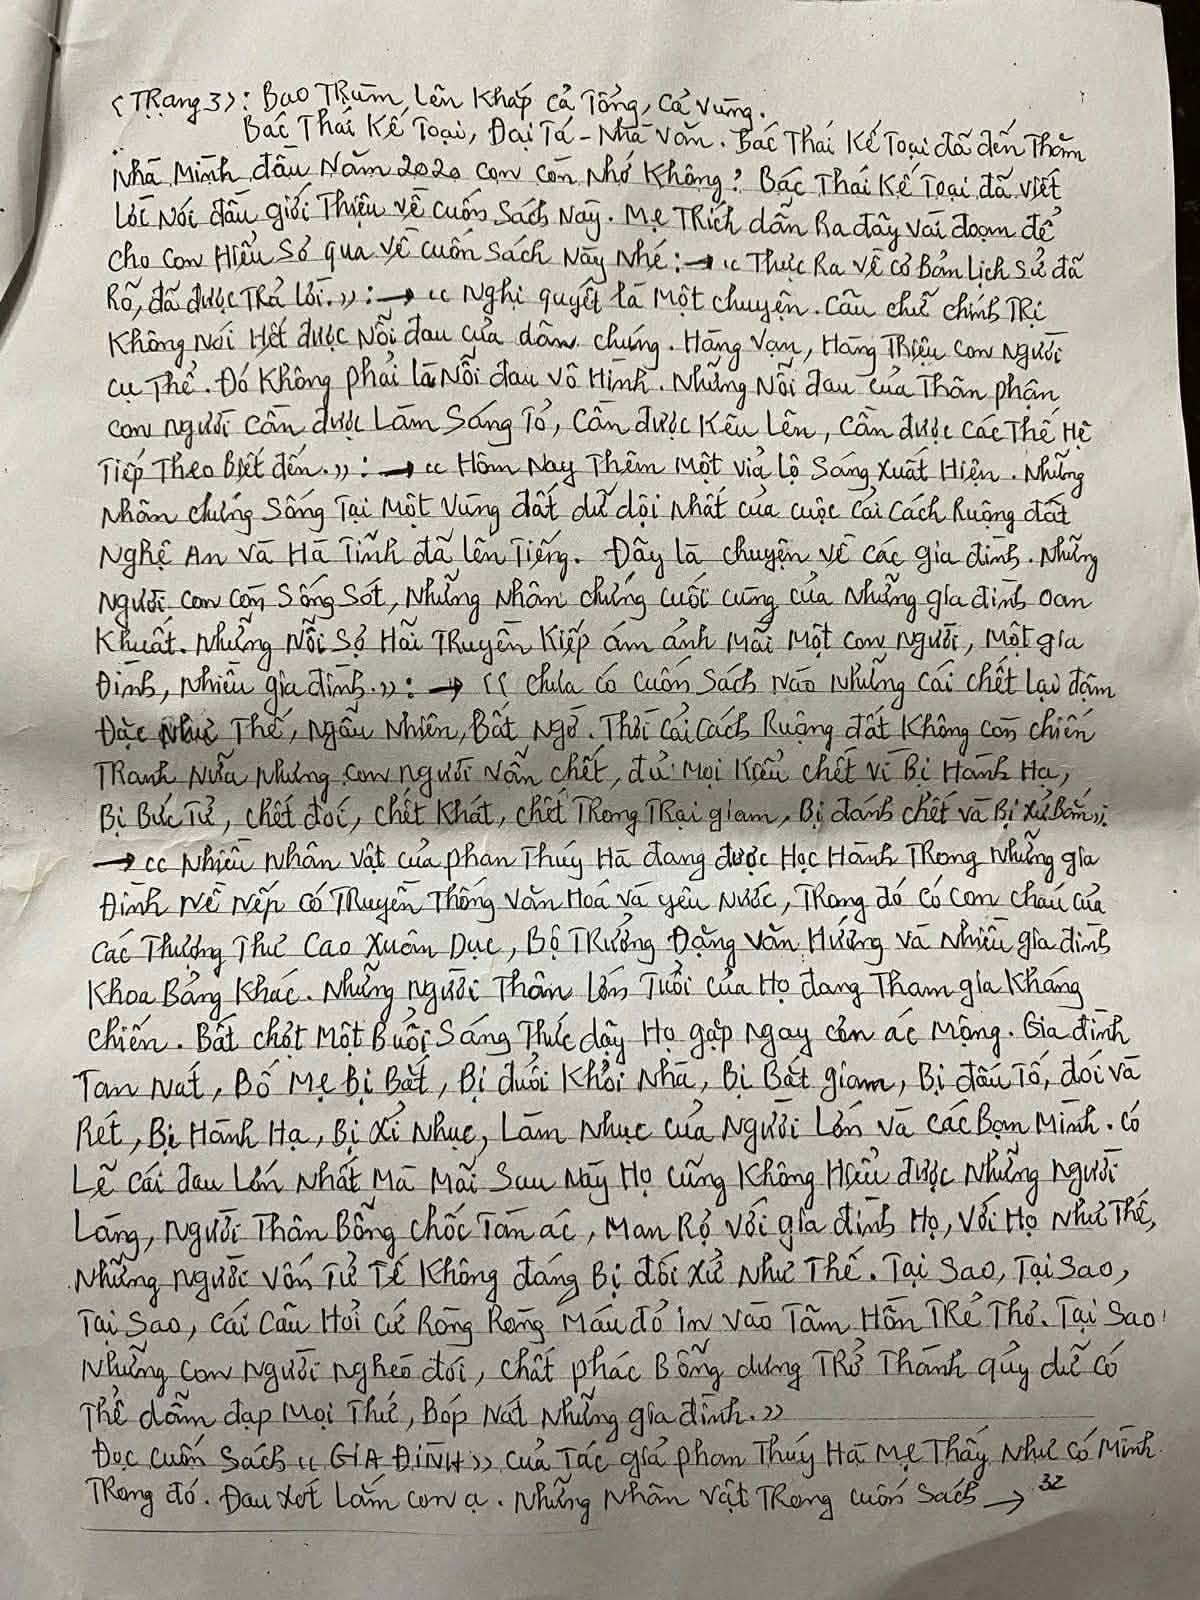 <Trang 3>: Bao trùm lên khắp cả tổng, cả vùng.
Bác Thái Kế Toại, Đại Tá - Nhà văn. Bác Thái Kế Toại đã đến thăm
nhà mình đầu năm 2020 con còn nhớ không? Bác Thái Kế Toại đã viết
lời nói đầu giới thiệu về cuốn sách này. Mẹ trích dẫn ra đây vài đoạn để
cho con hiểu sơ qua về cuốn sách này nhé: → "Thực ra về cơ bản lịch sử đã
rõ, đã được trả lời.»: → « Nghị quyết là một chuyện. Câu chữ chính trị
không nói hết được nỗi đau của dân chúng. Hàng vạn, hàng triệu con người
cụ thể. Đó không phải là nỗi đau vô hình. Những nỗi đau của thân phận
con người cần được làm sáng tỏ, cần được kêu lên, cần được các thế hệ
tiếp theo biết đến.»: → « Hôm nay thêm một vỉa lộ sáng xuất hiện. Những
nhân chứng sống tại một vùng đất dữ dội nhất của cuộc cải cách ruộng đất
Nghệ An và Hà Tĩnh đã lên tiếng. Đây là chuyện về các gia đình. Những
người con còn sống sót, những nhân chứng cuối cùng của những gia đình oan
khuất. Những nỗi sợ hãi truyền kiếp ám ảnh mãi một con người, một gia
đình, nhiều gia đình.»: → « Chưa có cuốn sách nào những cái chết lại đậm
đặc như thế, ngẫu nhiên, bất ngờ. Thời cải cách ruộng đất không còn chiến
tranh nữa nhưng con người vẫn chết, đủ mọi kiểu chết vì bị hành hạ,
bị bức tử, chết đói, chết khát, chết trong trại giam, bị đánh chết và bị xử bắn».
→ « Nhiều nhân vật của Phan Thúy Hà đang được học hành trong những gia
đình nề nếp có truyền thống văn hoá và yêu nước, trong đó có con cháu của
các Thượng thư Cao Xuân Dục, Bộ trưởng Đặng Văn Hướng và nhiều gia đình
khoa bảng khác. Những người thân lớn tuổi của họ đang tham gia kháng
chiến. Bất chợt một buổi sáng thức dậy họ gặp ngay cơn ác mộng. Gia đình
tan nát, bố mẹ bị bắt, bị đuổi khỏi nhà, bị bắt giam, bị đấu tố, đói và
rét, bị hành hạ, bị xỉ nhục, làm nhục của người lớn và các bạn mình. Có
lẽ cái đau lớn nhất mà mãi sau này họ cũng không hiểu được những người
làng, người thân bỗng chốc tàn ác, man rợ với gia đình họ, với họ như thế,
những người vốn tử tế không đáng bị đối xử như thế. Tại sao, tại sao,
tại sao, cái câu hỏi cứ ròng ròng máu đỏ in vào tâm hồn trẻ thơ. Tại sao
những con người nghèo đói, chất phác bỗng dưng trở thành quỷ dữ có
thể dẫm đạp mọi thứ, bóp nát những gia đình.»
Đọc cuốn sách « GIA ĐÌNH » của tác giả Phan Thúy Hà mẹ thấy như có mình
trong đó. Đau xót lắm con ạ. Những nhân vật trong cuốn sách → 32